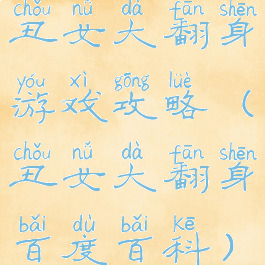 chǒu nǚ dà fān shēn
丑女大翻身
yóu xì gōng lüè
游戏攻略(
chǒu nǚ dà fān shēn
丑女大翻身
bǎi dù bǎi kē
百度百科)